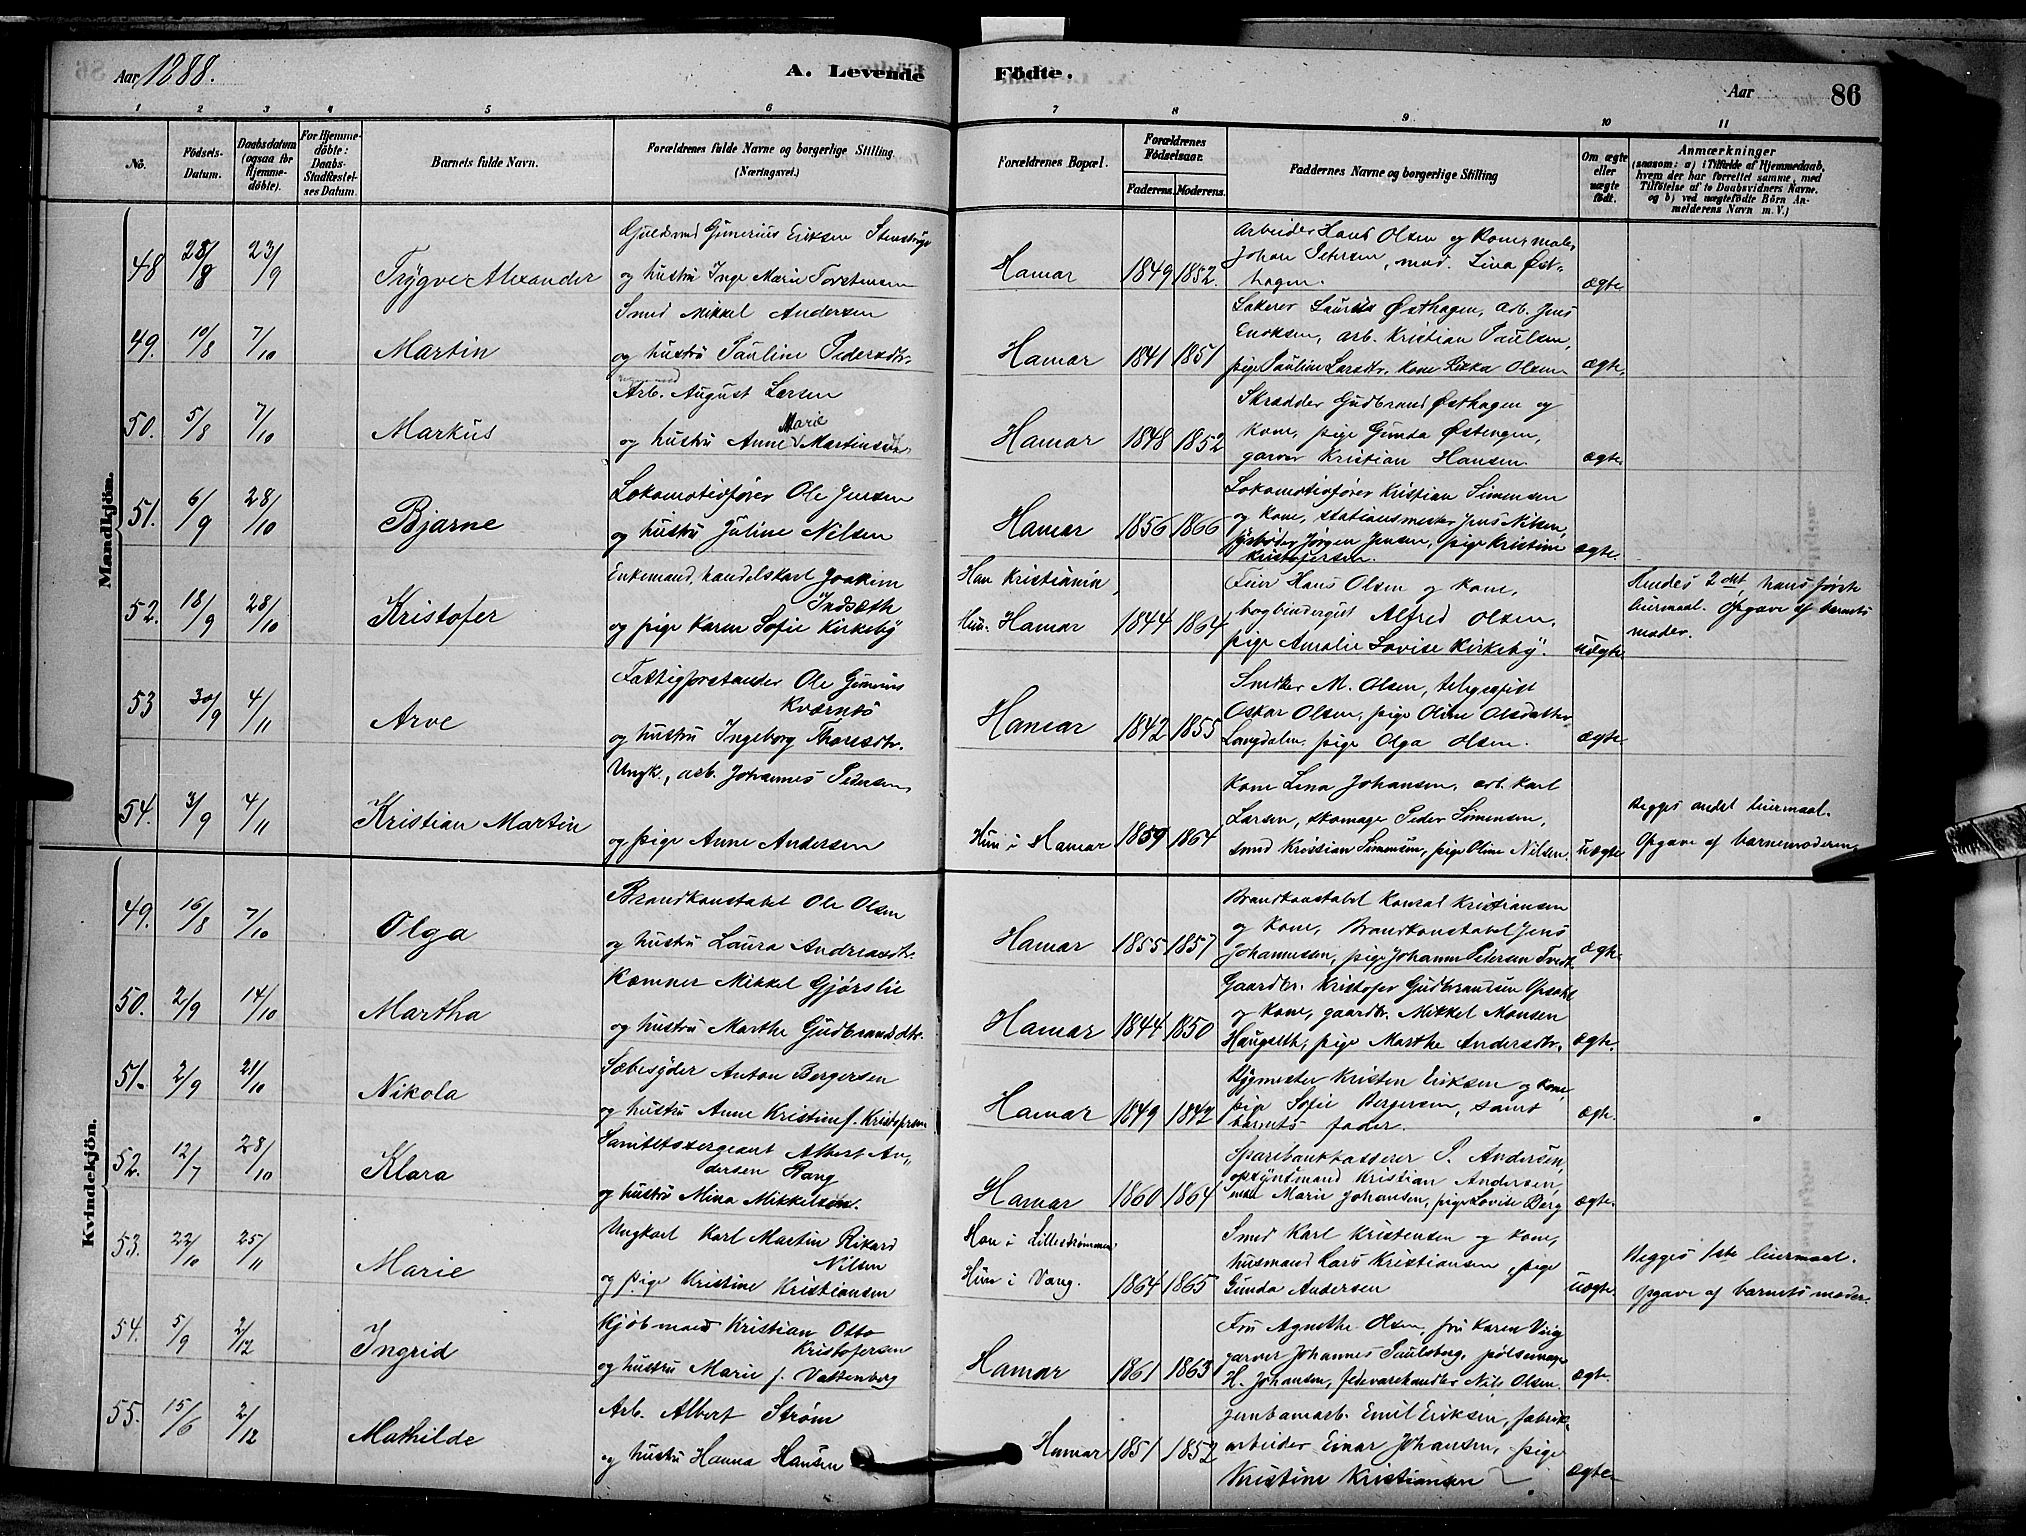 Aar 1888.
A. Levende Födte.
Aar 86
1 2 3 4 5 6 7 8 9 10 11
No.
Födsels-Datum.
Daabsdatum (ogsaa for Hjemme-döbte).
For Hjemme-döbte: Daabs-Stadfæstel-ses Datum.
Barnets fulde Navn.
Forældrenes fulde Navne og borgerlige Stilling (Næringsvei.)
Forældrenes Bopæl.
Forældrenes Födselsaar.
Faderens. Moderens.
Faddernes Navne og borgerlige Stilling
Om ægte eller uægte födt.
Anmærkninger
(saasom: a) i Tilfælde af Hjemmedaab,
hvem der har forrettet samme, med
Tilföielse af to Daabsvidners Navne.
og b) ved uægtefödte Börn An-
melderens Navn m. V.)
Mandkjön.
48 28/8 23/9 Trÿgve Alexander
Guldsmed Gunerius Eriksen
og hustru Inge Marie Torstensen
Hamar 1849 1852.
Arbeider Hans Olsen og Kone, maler
Johan Petersen, mad. Lina Øst-
hagen.
ægte
49. 10/8 7/10 Martin
Smed Mikkel Andersen
og hustru Pauline Pedersdtr.
Hamar 1841 1851
Østhagen, arb. Jens
Eriksen, arb. Kristian Paulsen,
pige Pauline Larsdtr, kone Olsen
ægte.
50. 5/8 7/10 Markus
Arb. August Larsen
og hustru Anne Marie Martinsdtr
Hamar 1848 1852
Skrædder Gudbrand Østhagen og
kone, pige Gunda Østengen,
garver Kristian Hansen
ægte
51. 6/9 28/10 Bjarne
Lokomotivfører Ole Jensen
og hustru Juline Nilsen
Hamar 1856 1866
Lokomotivfører Kristian Simensen
og kone, stationsmester Jens Nilsen,
fyrbøder Jørgen Jensen, pige Kristine
Kristofersen.
ægte.
52. 18/9 28/10 Kristofer
Enkemand, handelskarl Joakim
Indsæth
og pige Karen Sofie Kirkebÿ
Han Kristiania,
Hun. Hamar 1844 1864
Feier Hans Olsen og kone,
bogbindersvd Alfred Olsen,
pige Amalie Lovise Kirkebÿ.
uægte
Hendes 2det, hans første
leiermaal. Opgave af barnets
moder.
53 30/9 4/11 Arve
Fattigforstander Ole Gunerius
Kværnes
og hustru Ingeborg Thoresdtr.
Hamar 1842 1855
Snedker M. Olsen, telegrafist
Oskar Olsen, pige Oline Olsdatter
Langdalen, pige Olga Olsen.
ægte
54. 3/9 4/11 Kristian Martin
Ungk., arb. Johannes Petersen,
og pige Anne Andersen
Hun i Hamar 1859 1864
Kone Lina Johansen, arb. Karl
Larsen, skomager Peder Simensen,
smed Kristian Simensen, pige Oline Nilsen.
uægte
Begges andet leiermaal.
Opgave af barnemoderen
Kvindekjön.
49. 16/8 7/10 Olga
Brandkonstabel Ole Olsen
og hustru Laura Andreasdtr.
Hamar 1855 1857
Brandkonstabel Konrad Kristiansen
og kone, Brandkonstabel Jens
Johannesen, pige Johanne Petersen Tvedt.
ægte.
50. 2/9 14/10 Martha
Kæmner Mikkel Gjörslie
og hustru Marthe Gudbrandsdtr.
Hamar 1844 1850
Gaardbr. Kristofer Gudbrandsen Opsahl
og kone, gaardbr. Mikkel Monsen
Haugseth, pige Marthe Andersdtr.
ægte.
51. 2/9 21/10 Nikola
Sæbesÿder Anton Bergersen
og hustru Anne Kristine f. Kristofersen
Hamar 1849 1842
Bÿgmester Kristen Eriksen og kone,
pige Sofie Bergersen, samt
barnets fader.
ægte.
52. 12/7 28/10 Klara
Sanitetssergeant Albert An-
dersen Bang
og hustru Mina Mikkelsen.
Hamar 1860 1864
Sparebankkasserer P. Andersen,
opsÿnsmand Kristian Andersen,
mad Marie Johansen, pige Lovise Berg
ægte.
53. 22/10 25/11 Marie
Ungkarl Karl Martin Rikard
Nilsen
og pige Kristine Kristiansen
Han i Lillestrømmen
Hun i Vang. 1864 1865
Smed Karl Kristensen og kone,
husmand Lars Kristiansen, pige
Gunda Andersen
uægte.
Begges 1ste leiermaal.
Opgave af barnets moder.
54. 5/9 2/12 Ingrid
Kjöbmand Kristian Otto
Kristofersen
og hustru Marie f. Vattenberg
Hamar 1861 1863
Fru Agnethe Olsen, fru Karen
garver Johannes Paulsberg, pølsemager
H. Johansen, fedevarehandler Nils Olsen.
ægte.
55. 15/6 2/12 Mathilde
Arb. Albert Strøm
og hustru Hanna Hansen
Hamar 1851 1852
Jernbanearb. Emil Eriksen, fabrik-
arbeider Einar Johansen, pige
Kristine Kristiansen
ægte.